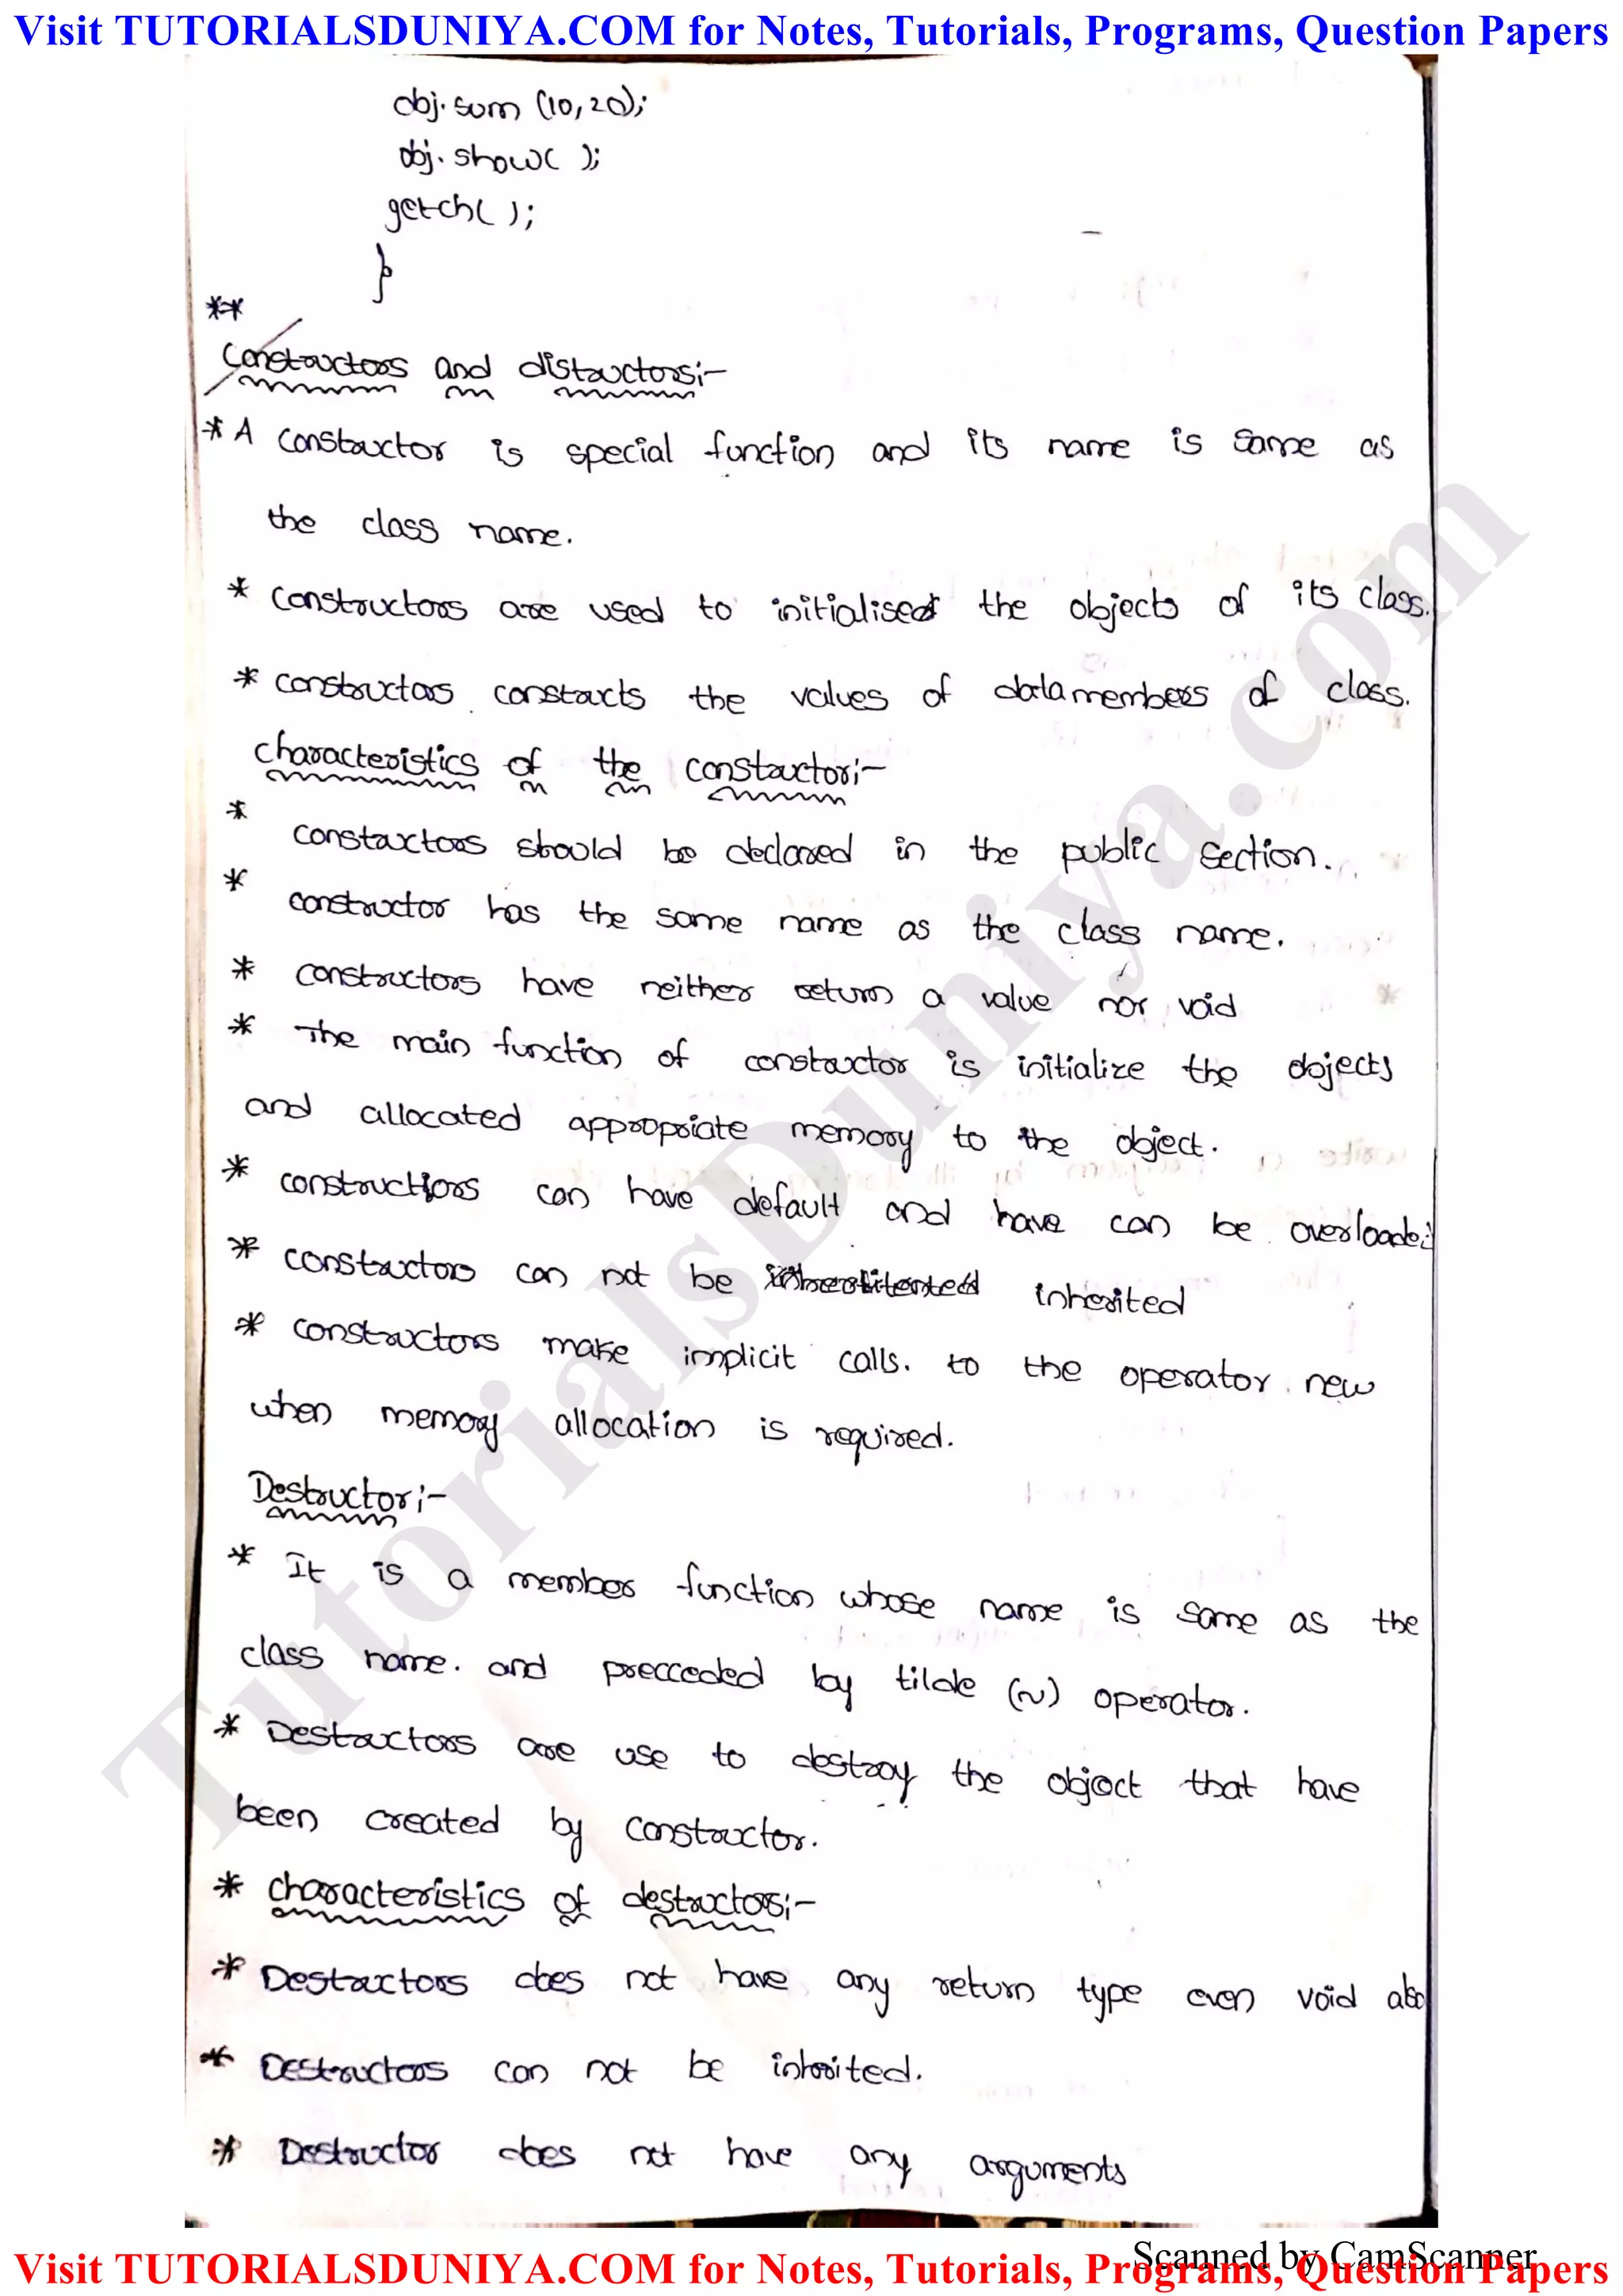 Visit TUTORIALSDUNIYA.COM for Notes, Tutorials, Programs, Question Papers
obj.sum (10,20);
obj.show( );
getch( );
}
**
Constructors and distructors:-
* A constructor is special function and its name is same as
the class name.
* constructors are used to initialised the objects of its class.
* constructors constructs the values of data members of class.
characteristics of the constructor:-
*
constructors should be declared in the public section.
*
constructor has the same name as the class name.
* constructors have neither return a value nor void
* The main function of constructor is initialize the objects
and allocated appropriate memory to the object.
* constructors can have default and have can be overloaded
* constructors can not be inherited
* constructors make implicit calls. to the operator new
when memory allocation is required.
Destructor:-
* It is a member function whose name is same as the
class name. and precceded by tilde (~) operator.
* Destructors are use to destroy the object that have
been created by constructor.
* characteristics of destructors:-
* Destructors does not have any return type even void also
* Destructors can not be inherited.
* Destructor does not have any arguments
TutorialsDuniya.com
Scanned by CamScanner
Visit TUTORIALSDUNIYA.COM for Notes, Tutorials, Programs, Question Papers